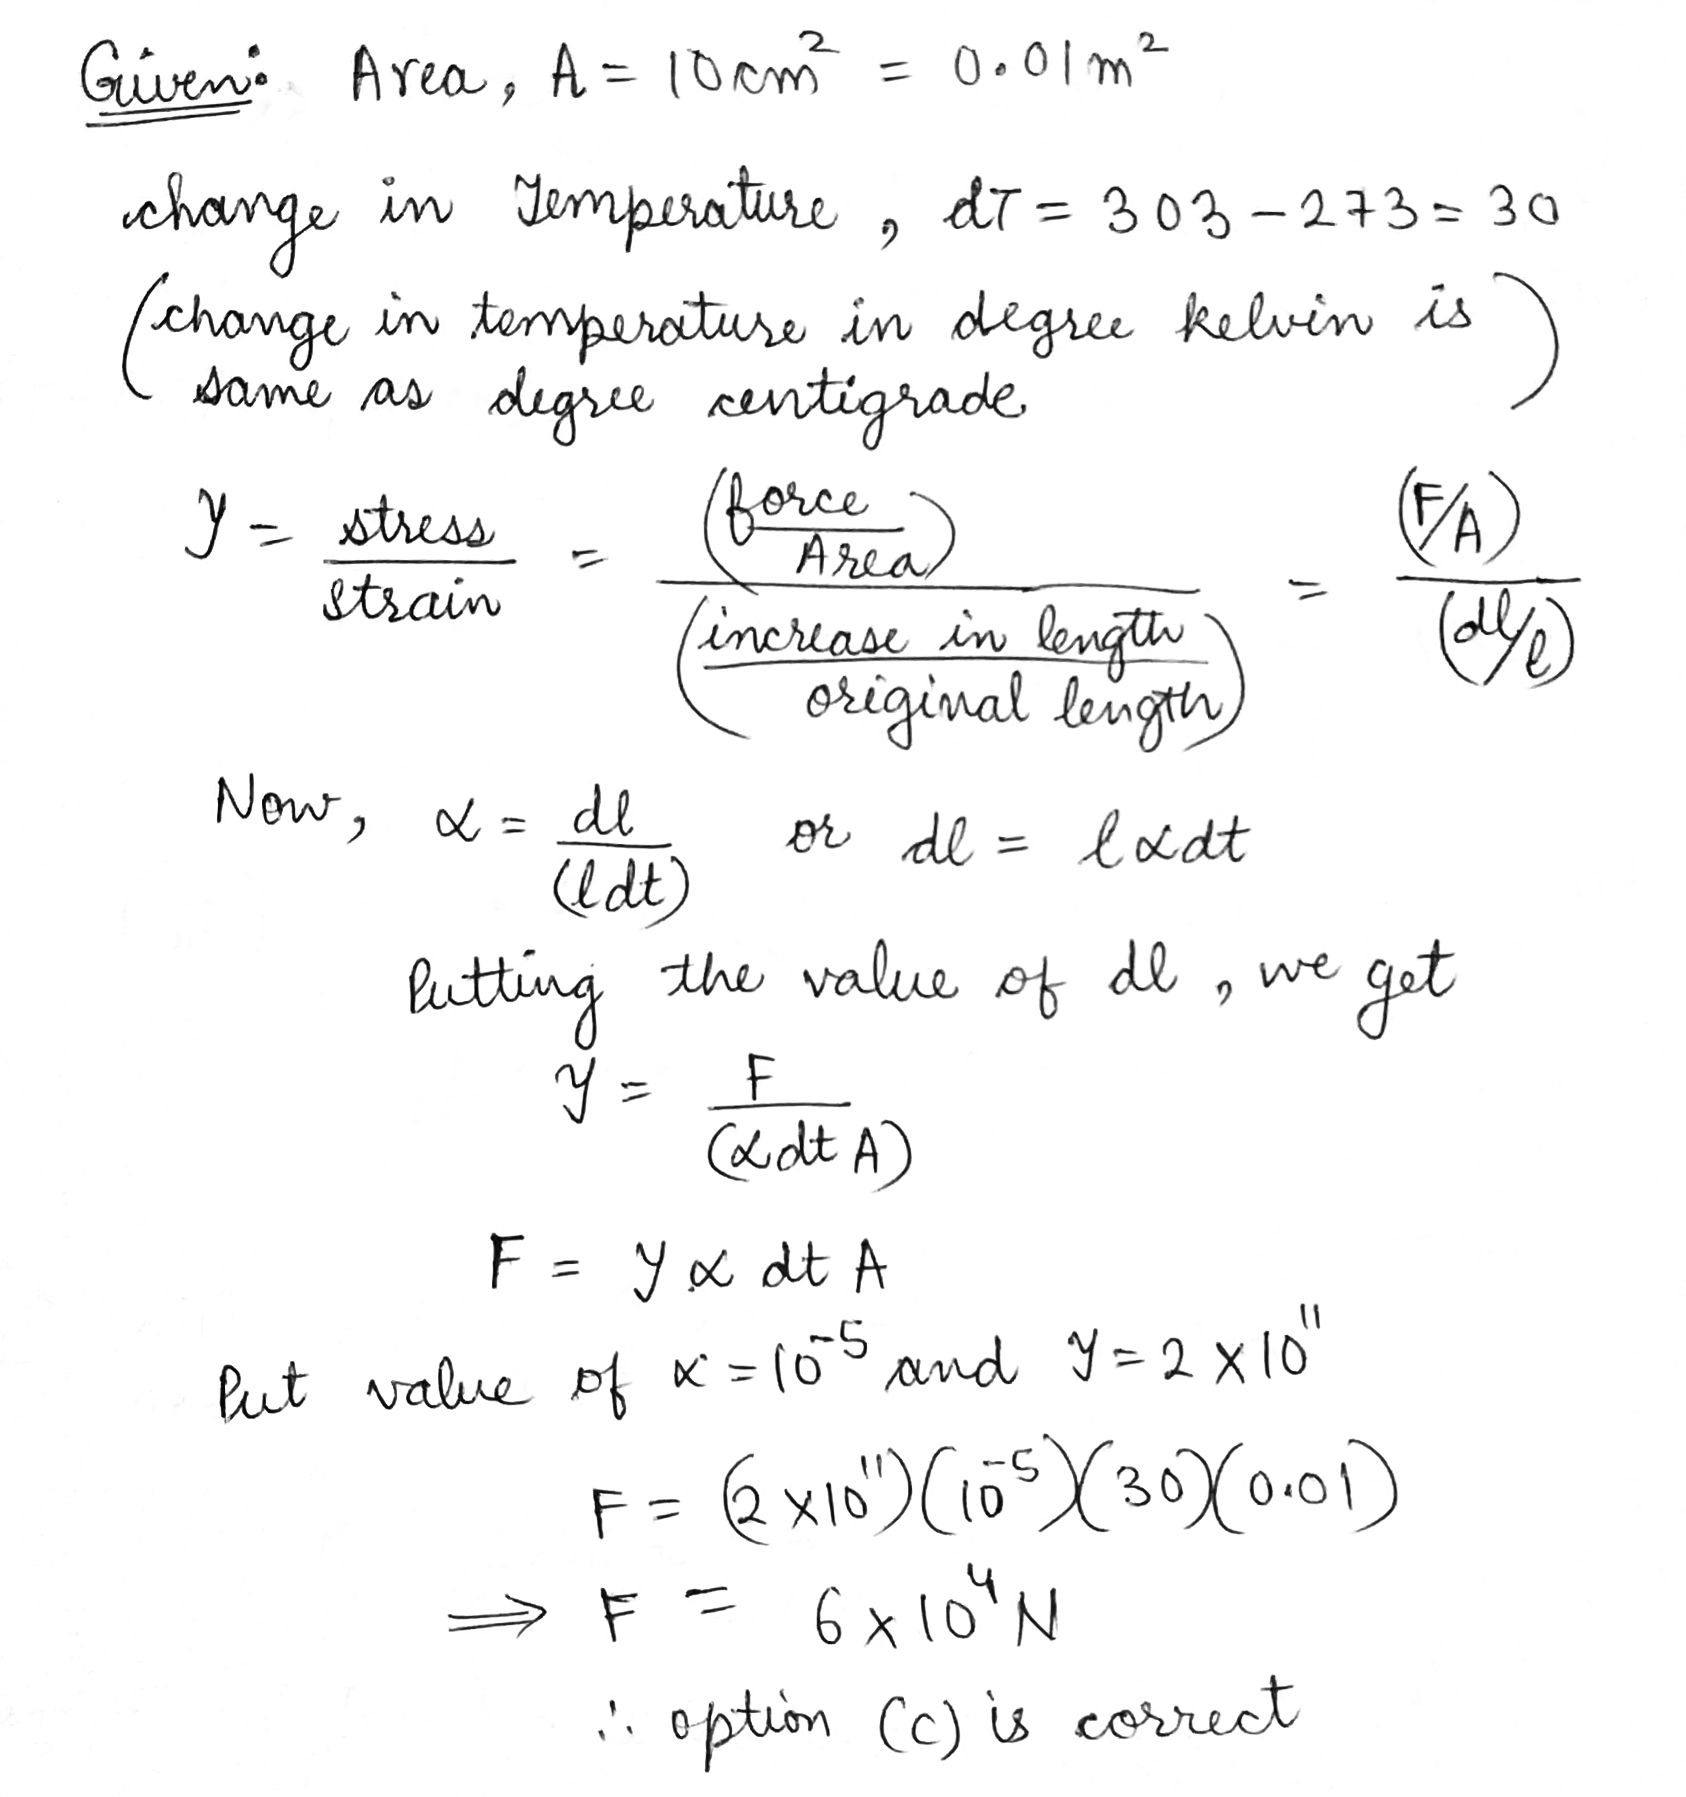 Given: Area, A = 10cm² = 0.01m²
change in Temperature, dT = 303 - 273 = 30
(change in temperature in degree kelvin is
same as degree centigrade)
Y = stress/strain = (force/Area)/(increase in length/original length) = (F/A)/(dl/l)
Now, α = dl/(ldt) or dl = lαdt
Putting the value of dl, we get
Y = F/(αdtA)
F = Yα dt A
Put value of α = 10⁻⁵ and Y = 2 × 10¹¹
F = (2 × 10¹¹)(10⁻⁵)(30)(0.01)
⇒ F = 6 × 10⁴ N
∴ option (C) is correct